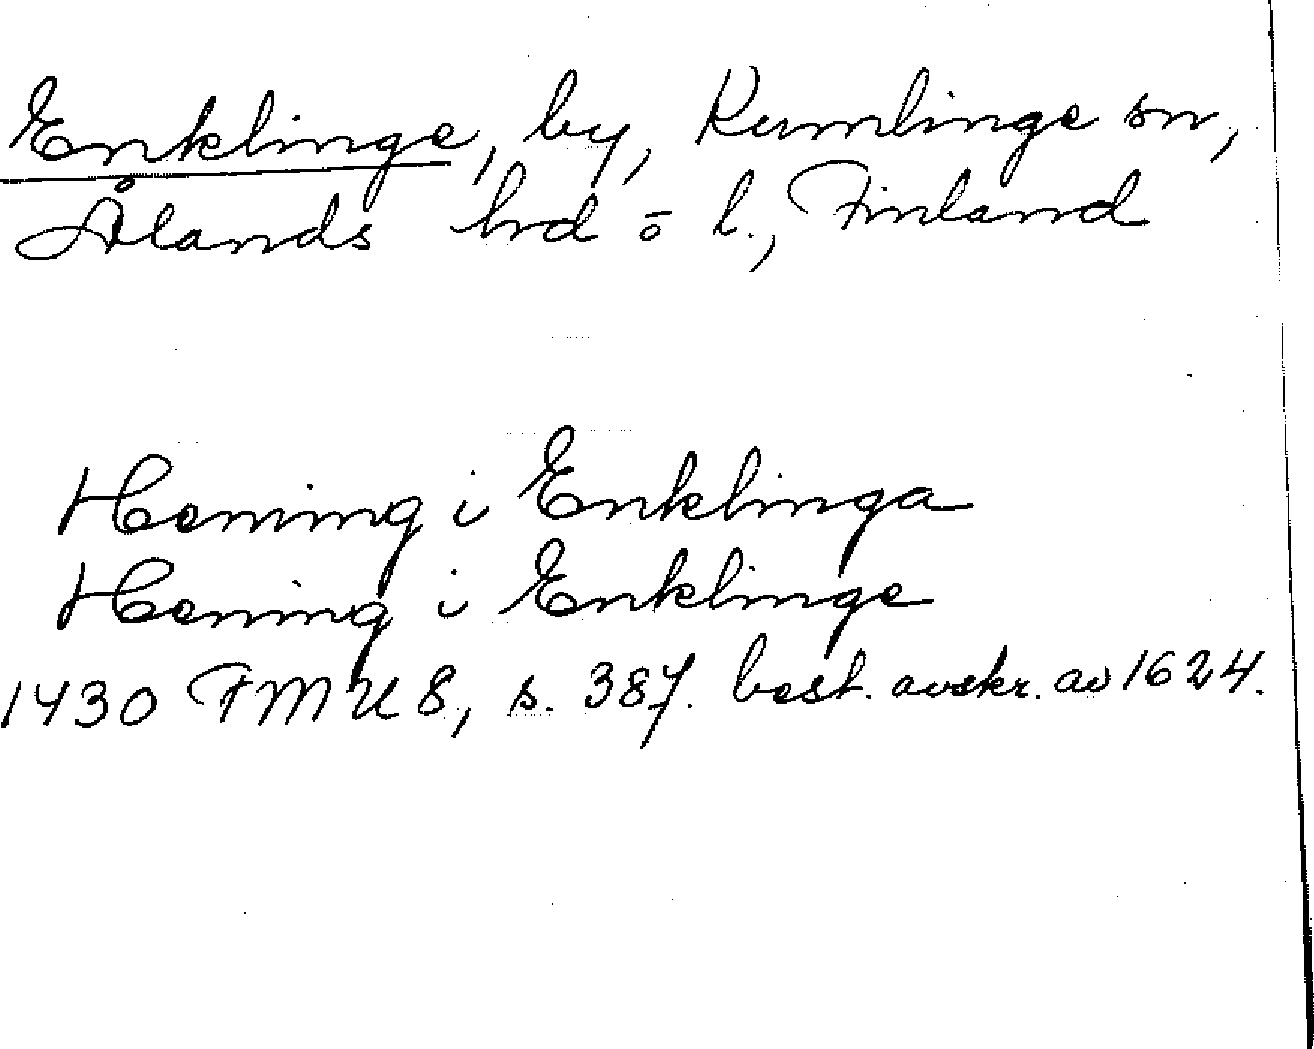 Enklinge, by, Kumlinge sn,
Ålands hd o l., Finland
Hening i Enklinga
Hening i Enklinge
1430 FMU 8, s. 387. best. avskr. av 1624.